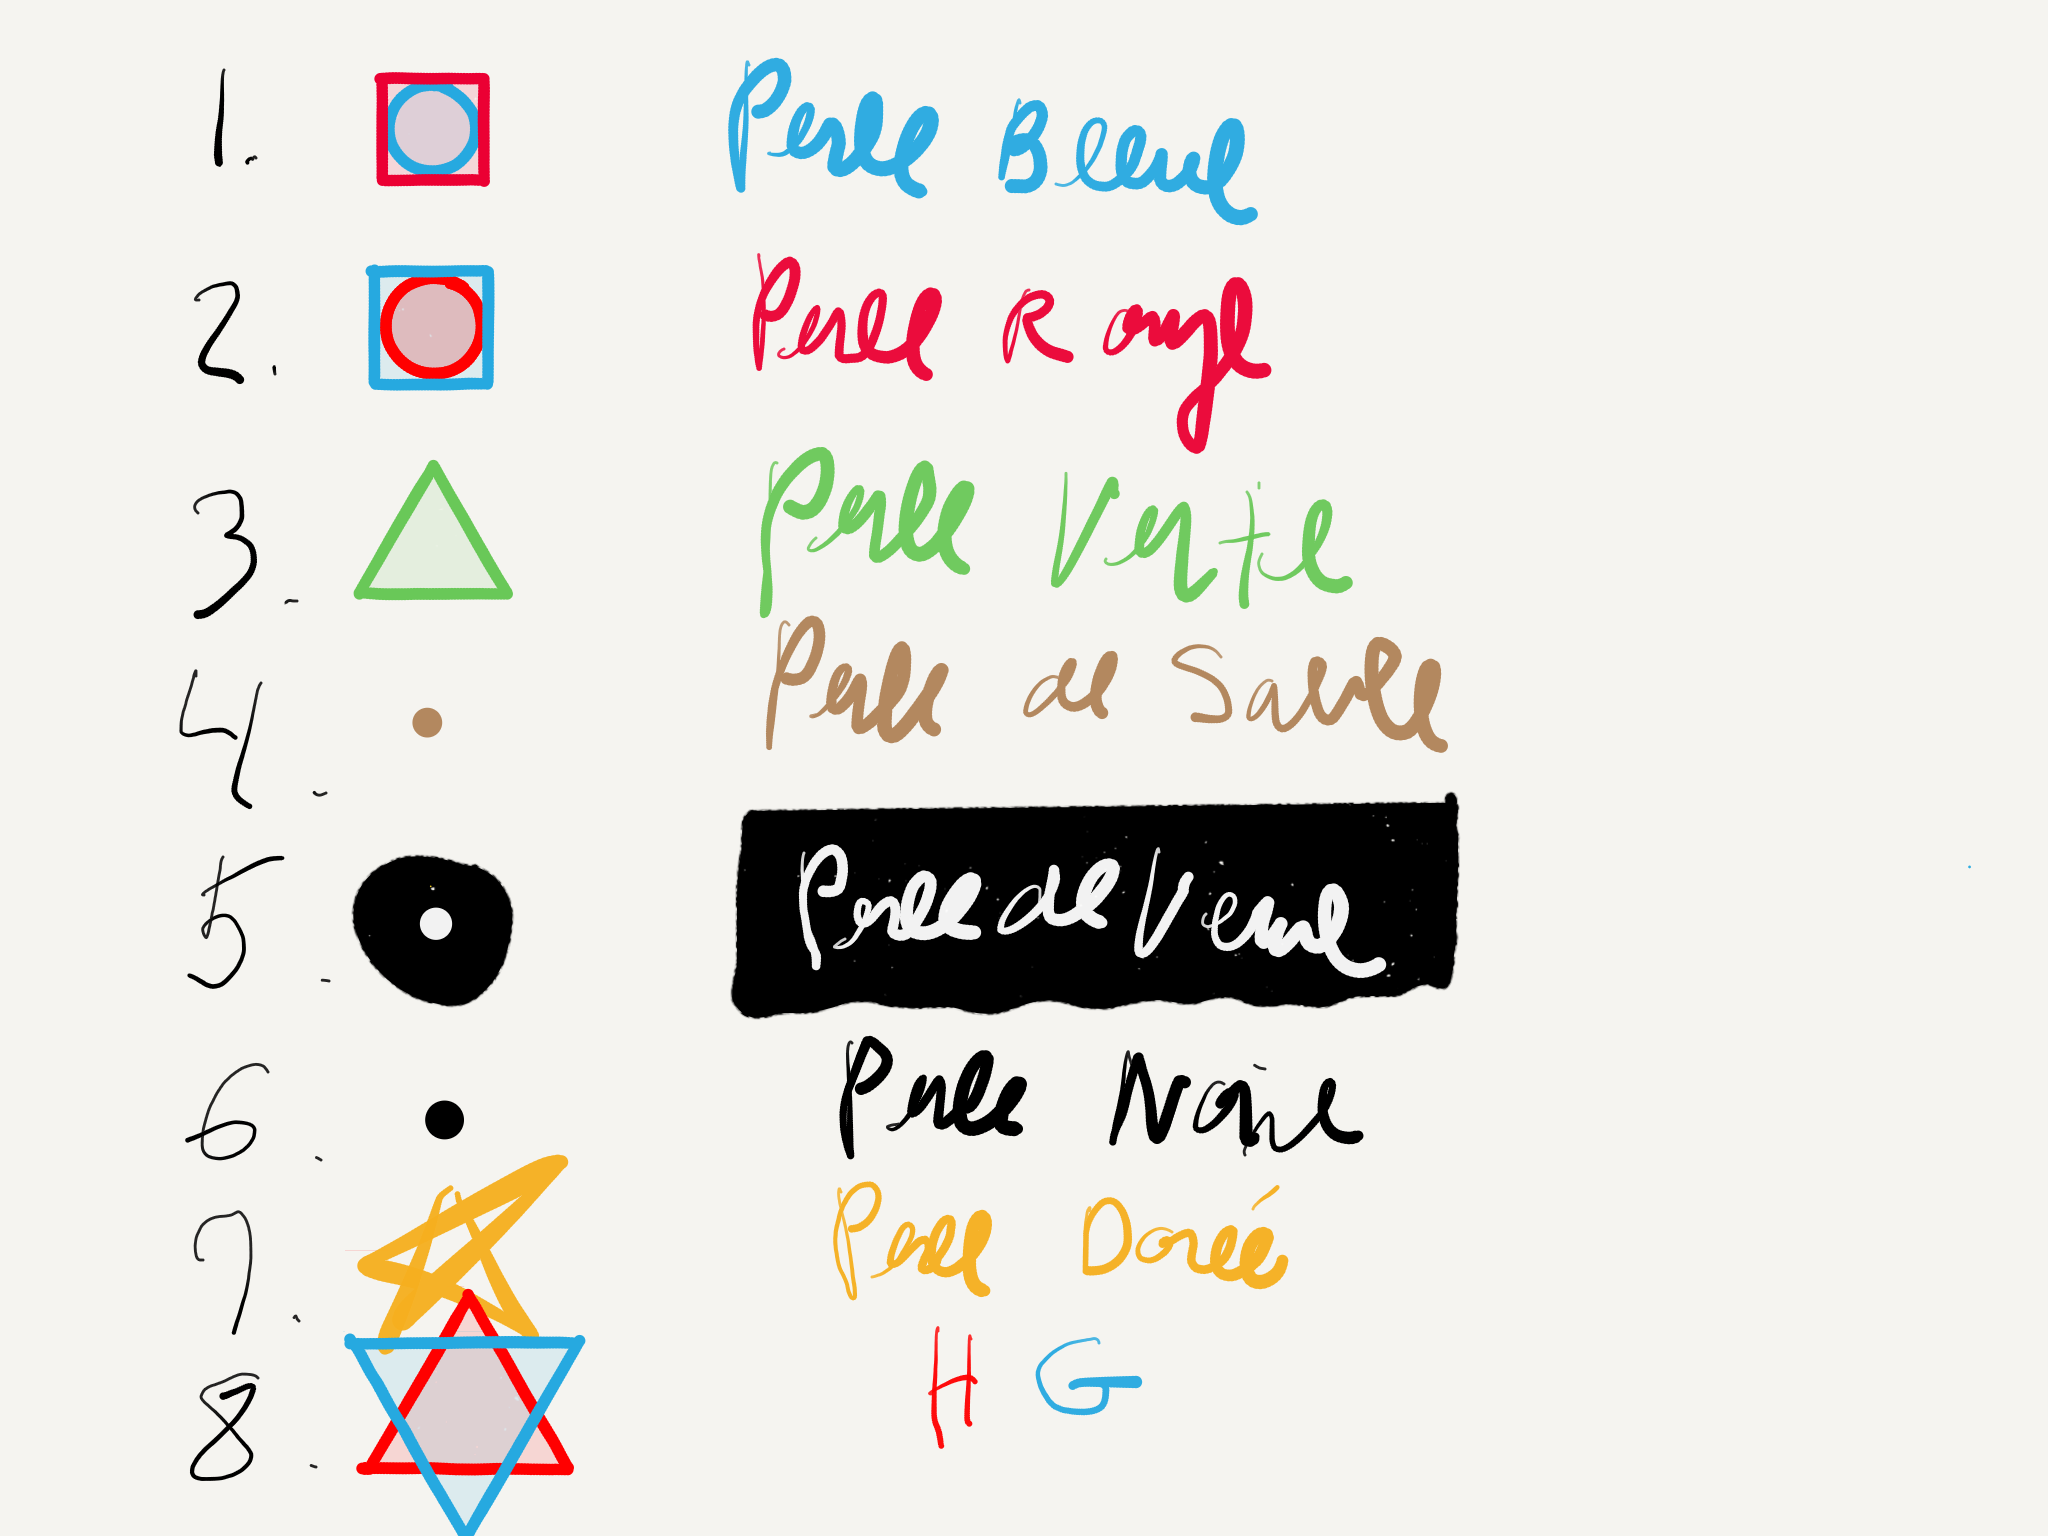 1. Perle Bleue
2. Perle Rouge
3. Perle Verte
4. Perle de Sable
5. Perle de Verre
6. Perle Noire
7. Perle Dorée
8. H G